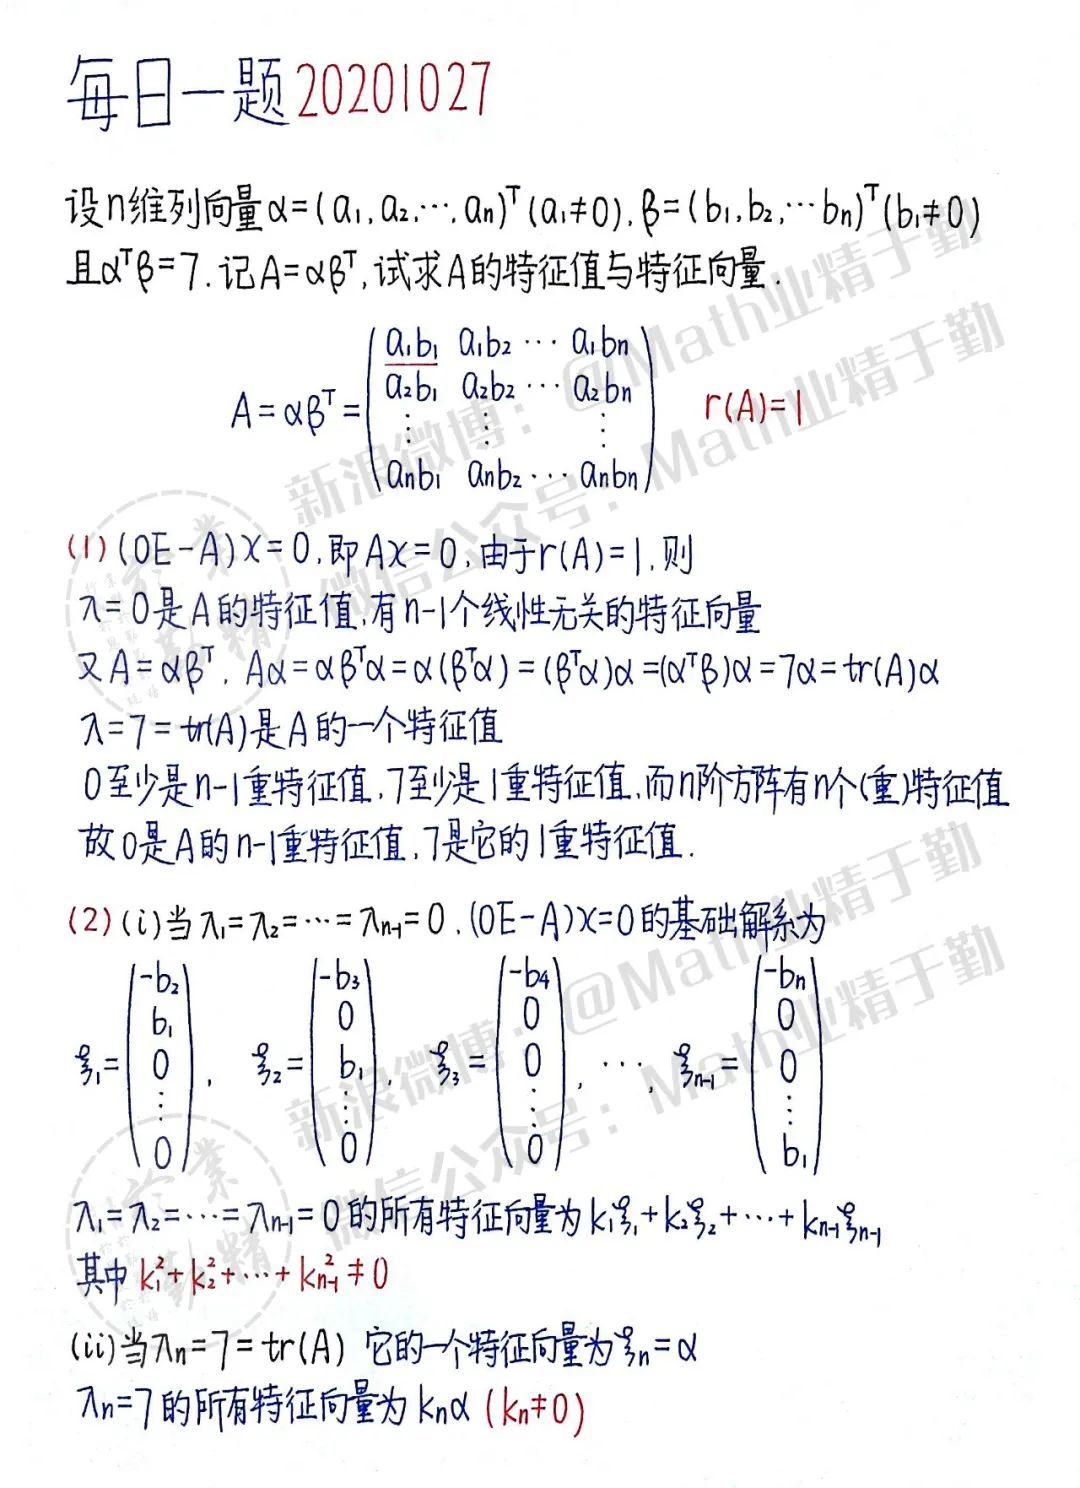 每日一题20201027
设n维列向量α=(a₁,a₂,…,aₙ)ᵀ(a₁≠0),β=(b₁,b₂,…bₙ)ᵀ(b₁≠0)
且αᵀβ=7.记A=αβᵀ,试求A的特征值与特征向量.
A=αβᵀ=(a₁b₁ a₁b₂ … a₁bₙ
a₂b₁ a₂b₂ … a₂bₙ
⋮ ⋮ ⋮
aₙb₁ aₙb₂ … aₙbₙ) r(A)=1
(1)(0E-A)x=0,即Ax=0,由于r(A)=1,则
λ=0是A的特征值,有n-1个线性无关的特征向量
又A=αβᵀ, Aα=αβᵀα=α(βᵀα)=(βᵀα)α=(αᵀβ)α=7α=tr(A)α
λ=7=tr(A)是A的一个特征值
0至少是n-1重特征值,7至少是1重特征值,而n阶方阵有n个(重)特征值
故0是A的n-1重特征值,7是它的1重特征值.
(2)(i)当λ₁=λ₂=…=λₙ₋₁=0,(0E-A)x=0的基础解系为
ξ₁=(-b₂ b₁ 0 ⋮ 0), ξ₂=(-b₃ 0 b₁ ⋮ 0), ξ₃=(-b₄ 0 0 ⋮ 0), …, ξₙ₋₁=(-bₙ 0 0 ⋮ b₁)
λ₁=λ₂=…=λₙ₋₁=0的所有特征向量为k₁ξ₁+k₂ξ₂+…+kₙ₋₁ξₙ₋₁
其中k₁²+k₂²+…+kₙ₋₁²≠0
(ii)当λₙ=7=tr(A) 它的一个特征向量为ξₙ=α
λₙ=7的所有特征向量为kₙα(kₙ≠0)
新浪微博:@Math业精于勤
微信公众号:Math业精于勤
新浪微博:@Math业精于勤
微信公众号:Math业精于勤